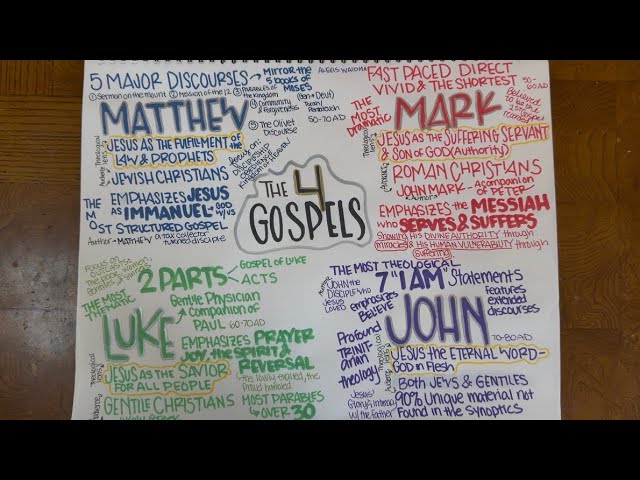 5 MAJOR DISCOURSES → MIRROR the
5 books of
MOSES
① Sermon on the mount ② Mission of the 12 ③ PARABLES of
the Kingdom
(Gen → Deut)
Torah/
Pentateuch
④ Community
& Forgiveness
⑤ The Olivet
Discourse
50-70 AD
MATTHEW
Theological
lens
JESUS AS THE FULFILLMENT OF the
LAW & PROPHETS
Audience
JEWISH CHRISTIANS
Focus on:
DISCIPLESHIP
OBEDIENCE
Kingdom of Heaven
EMPHASIZES JESUS
AS IMMANUEL → GOD
W/ US
THE MOST STRUCTURED GOSPEL
Author → MATTHEW a tax collector
turned disciple
FAST PACED DIRECT
VIVID & THE SHORTEST
50-
60 AD
THE MOST
DRAMATIC
MARK
Believed
to be the
Gospel
Theological
lens
JESUS AS THE SUFFERING SERVANT
& SON OF GOD (Authority)
Audience
ROMAN CHRISTIANS
Author
JOHN MARK → a companion
of PETER
EMPHASIZES the MESSIAH
WHO SERVES & SUFFERS
Showing HIS DIVINE AUTHORITY through
miracles & HIS HUMAN VULNERABILITY through
suffering.
THE 4
GOSPELS
Focus on
2 PARTS
GOSPEL OF LUKE
ACTS
THE MOST
THEMATIC
Gentile Physician
& companion of
PAUL 60-70 AD
LUKE
EMPHASIZES PRAYER
JOY, THE SPIRIT &
REVERSAL
→ the lowly exalted, the
proud humbled
Theological
lens
JESUS AS THE SAVIOR
FOR ALL PEOPLE
GENTILE CHRISTIANS
MOST PARABLES
→ OVER 30
THE MOST THEOLOGICAL
Author
JOHN the
DISCIPLE who
JESUS
LOVED
7 "I AM" Statements
emphasizes
BELIEVE
features
extended
discourses
JOHN
Profound
TRINIT-
arian
theology
70-80 AD
Theological
lens
JESUS the ETERNAL WORD —
GOD in Flesh
Audience
Both JEWS & GENTILES
Jesus'
Glory & intimacy
w/ the Father
90% Unique material not
Found in the Synoptics